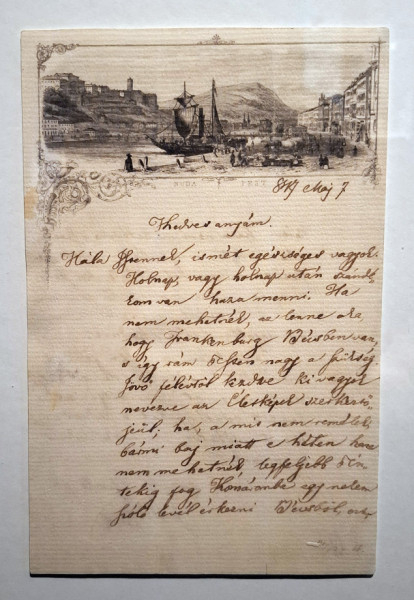 BUDA PEST
847 Máj 7
Kedves anyám.
Hála Istennek, ismét egészséges vagyok.
Holnap, vagy holnap után szándé-
kom van haza menni. Ha
nem mehetnék, az lenne oka
hogy Frankenburg Bécsben van,
s így rám nagy a szükség
Jövő félévtől kezdve ki vagyok
nevezve az Életképek szerkesztő-
jéül: ha, a mit nem remélek,
bármi baj miatt e héten haza
nem mehetnék, legfeljebb pén
tekig fog Komáromba egy nekem
szóló levél érkezni Bécsből,